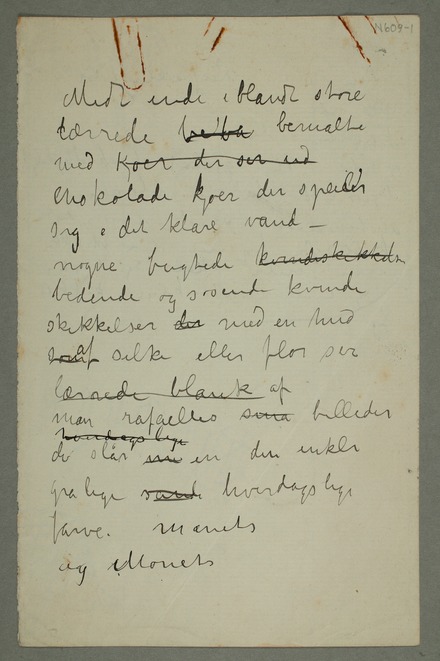 N609-1
Midt inde iblandt store
lærrede bemalte
med Køer der ser ud
chokolade kjøer der speiler
sig i det klare vand —
nogne bugtede kvindeskikkelser
bedende og kvinde
skikkelser der med en hud
som af silke eller flor ser
lærrede blank af
man rafaellis små billeder
hverdagslige
de slår en den enkle
gralige sande hverdagslige
farve. Manets
og Monets